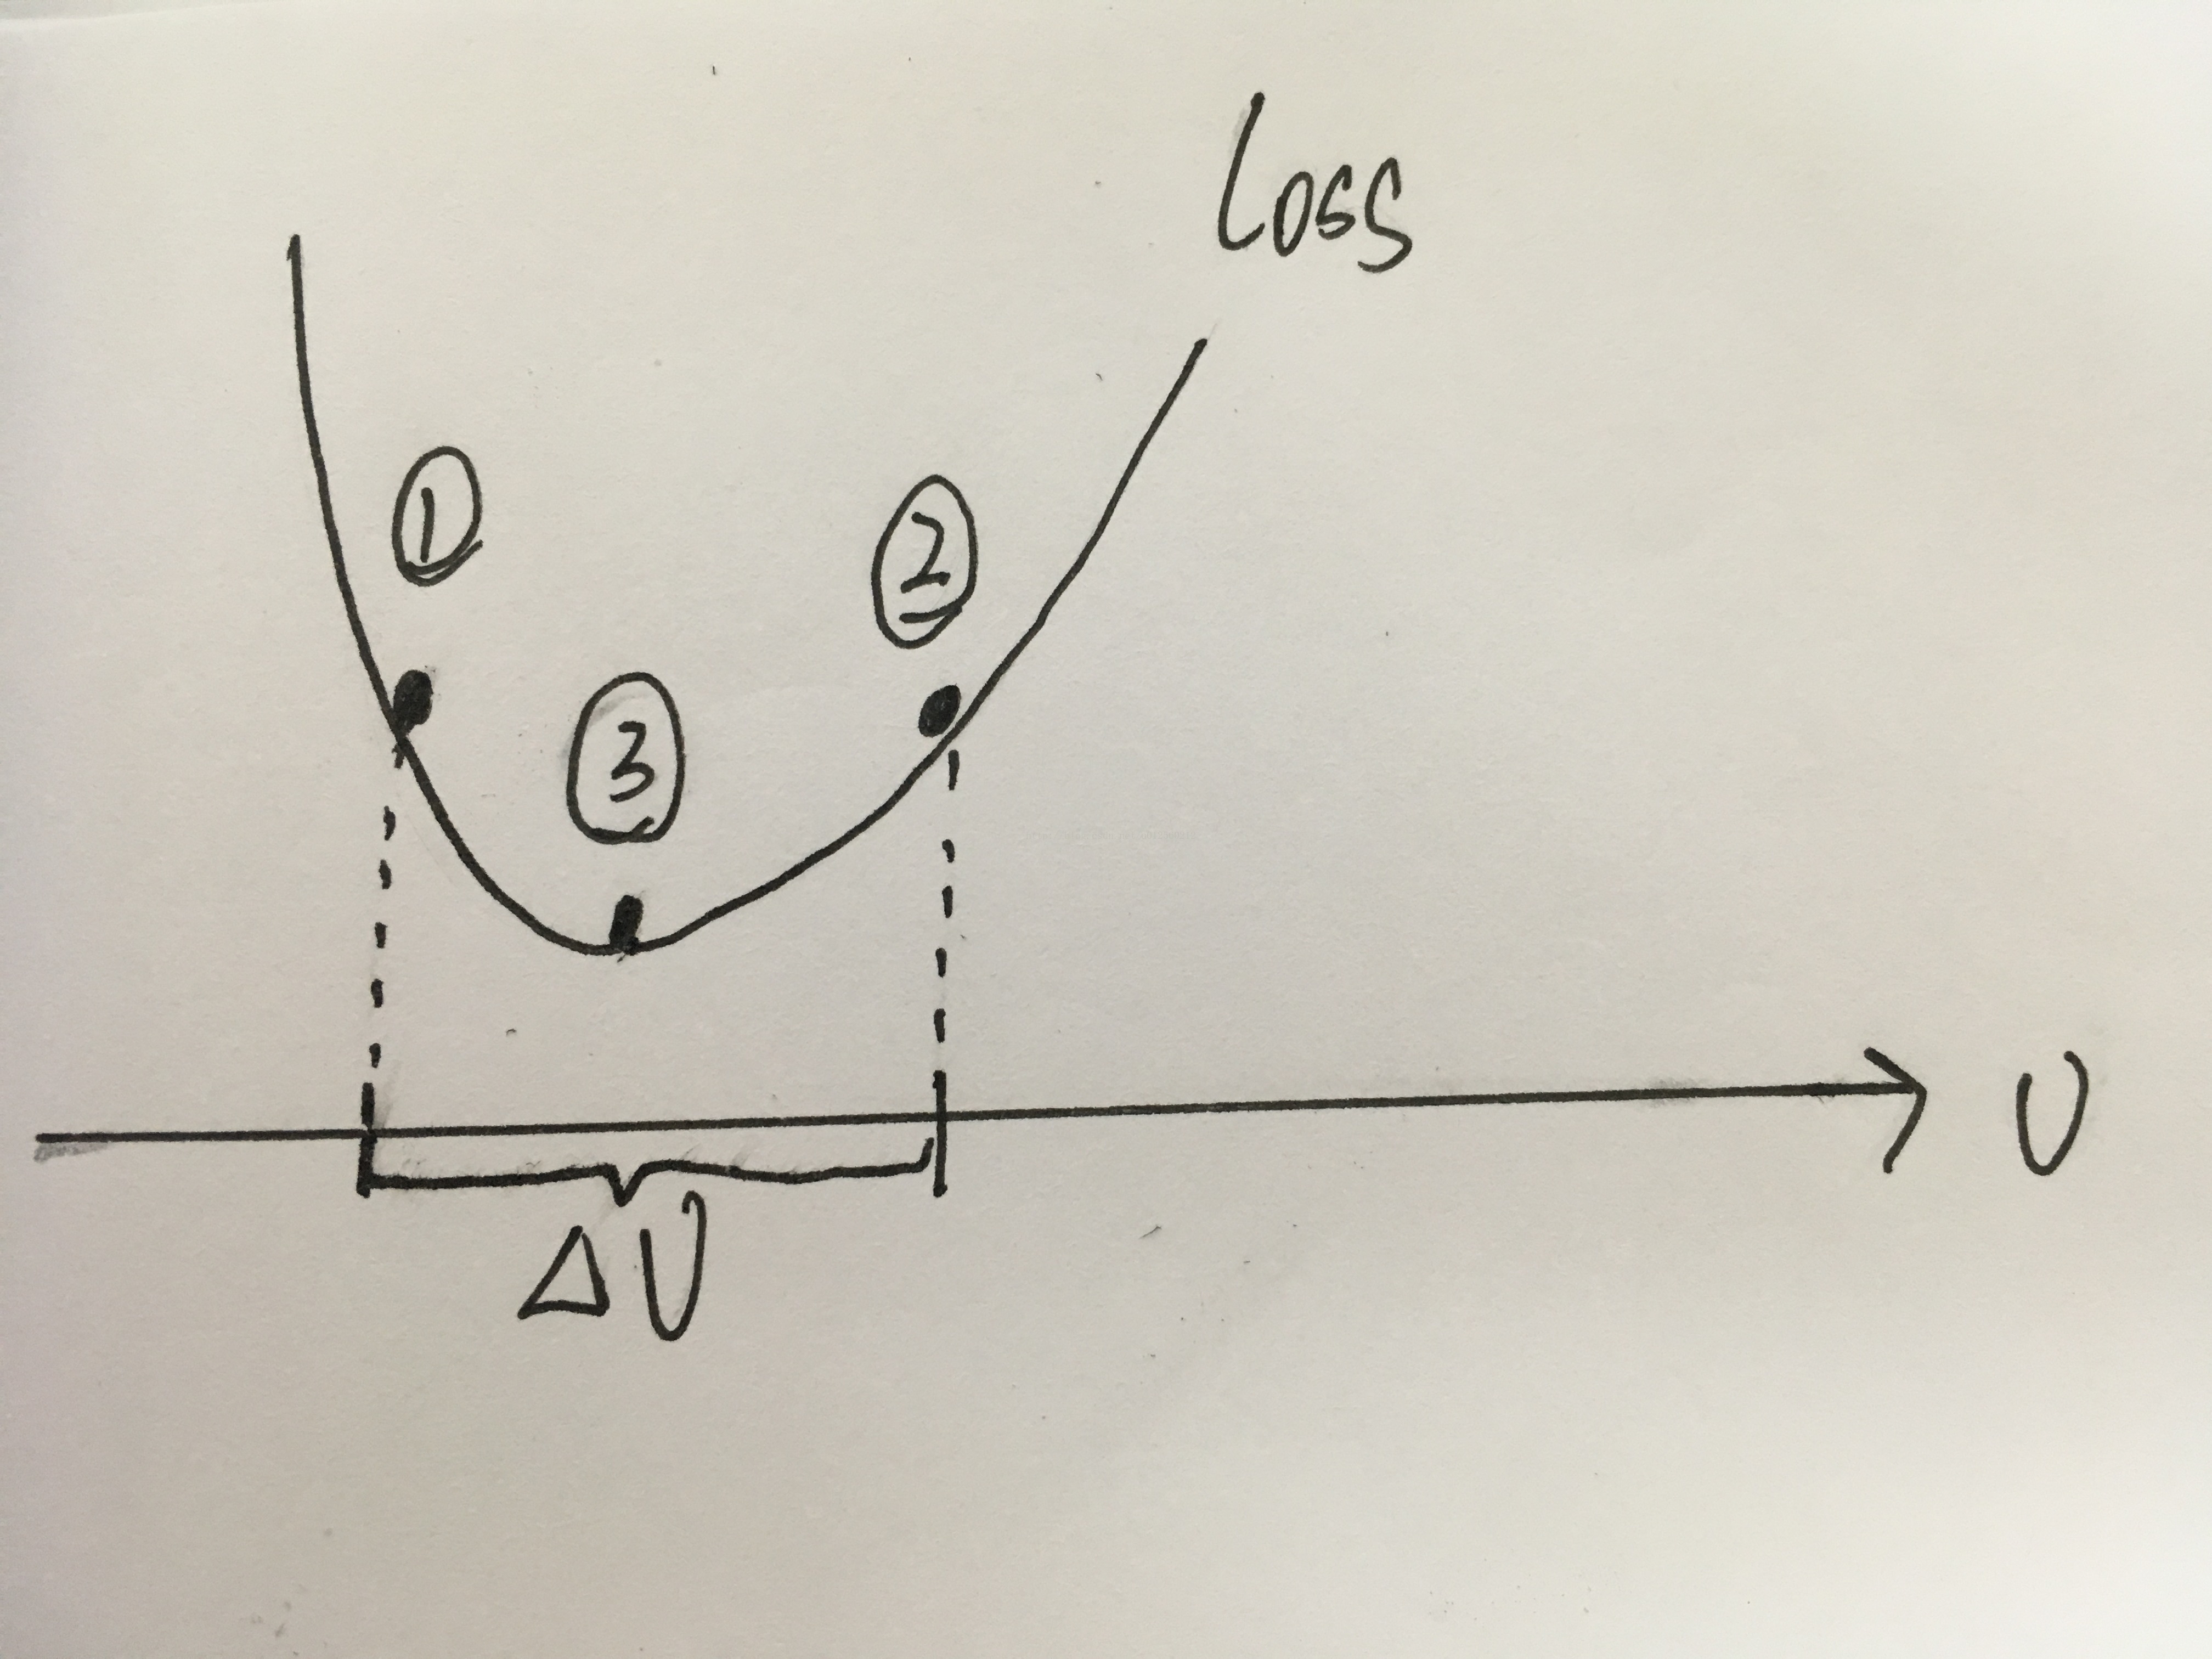 Loss
①
②
③
U
ΔU